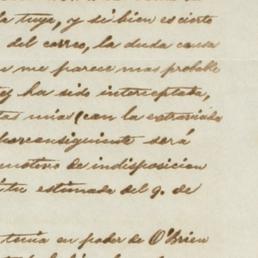 la tuya, y si bien es cierto
del correo, la duda causa
me parece mas probable
ha sido interceptada,
mias (con la extraviada
porconsiguiente será
motivo de indisposicion
tu estimada del 9. de
tenia en poder de O'Brien